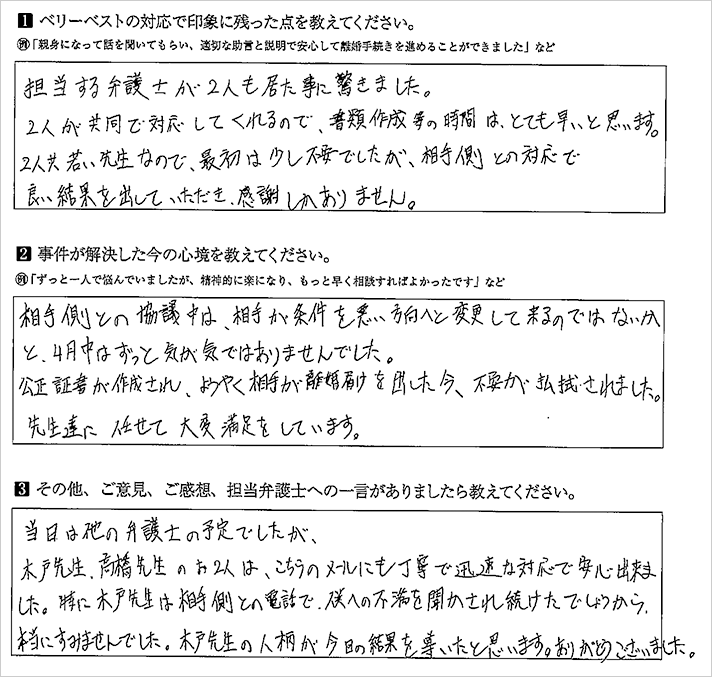 1 ベリーベストの対応で印象に残った点を教えてください。
例「親身になって話を聞いてもらい、適切な助言と説明で安心して離婚手続きを進めることができました」など
担当する弁護士が2人も居た事に驚きました。
2人が共同で対応してくれるので、書類作成等の時間は、とても早いと思います。
2人共若い先生なので、最初は少し不安でしたが、相手側との対応で
良い結果を出していただき、感謝しかありません。
2 事件が解決した今の心境を教えてください。
例「ずっと一人で悩んでいましたが、精神的に楽になり、もっと早く相談すればよかったです」など
相手側との協議中は、相手が条件を悪い方向へと変更して来るのではないか
と、4月中はずっと気が気ではありませんでした。
公正証書が作成され、ようやく相手が離婚届けを出した今、不安が払拭されました。
先生達に任せて大変満足をしています。
3 その他、ご意見、ご感想、担当弁護士への一言がありましたら教えてください。
当日は他の弁護士の予定でしたが、
木戸先生、高橋先生のお2人は、こちらのメールにも丁寧で迅速な対応で安心出来ま
した。特に木戸先生は相手側との電話で、僕への不満を聞かされ続けたでしょうから、
本当にすみませんでした。木戸先生の人柄が今日の結果を導いたと思います。ありがとうございました。